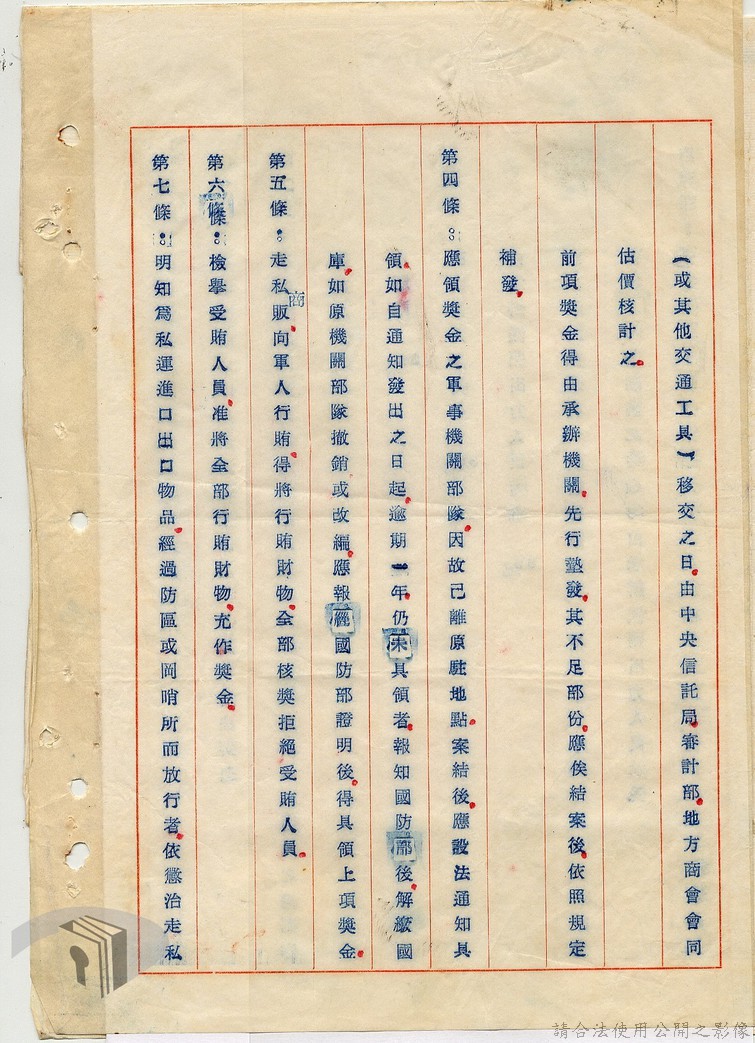 （或其他交通工具）移交之日由中央信託局審計部地方商會會同
估價核計之
前項獎金得由承辦機關先行墊發其不足部份應俟結案後依照規定
補發
第四條：應領獎金之軍事機關部隊因故已離原駐地點案結後應設法通知具
領如自通知發出之日起逾期一年仍未具領者報知國防部後解繳國
庫如原機關部隊撤銷或改編應報經國防部證明後得具領上項獎金
第五條：走私商販向軍人行賄得將行賄財物全部核獎拒絕受賄人員
第六條：檢舉受賄人員准將全部行賄財物充作獎金
第七條：明知為私運進口出口物品經過防區或崗哨所而放行者依懲治走私
請合法使用公開之影像